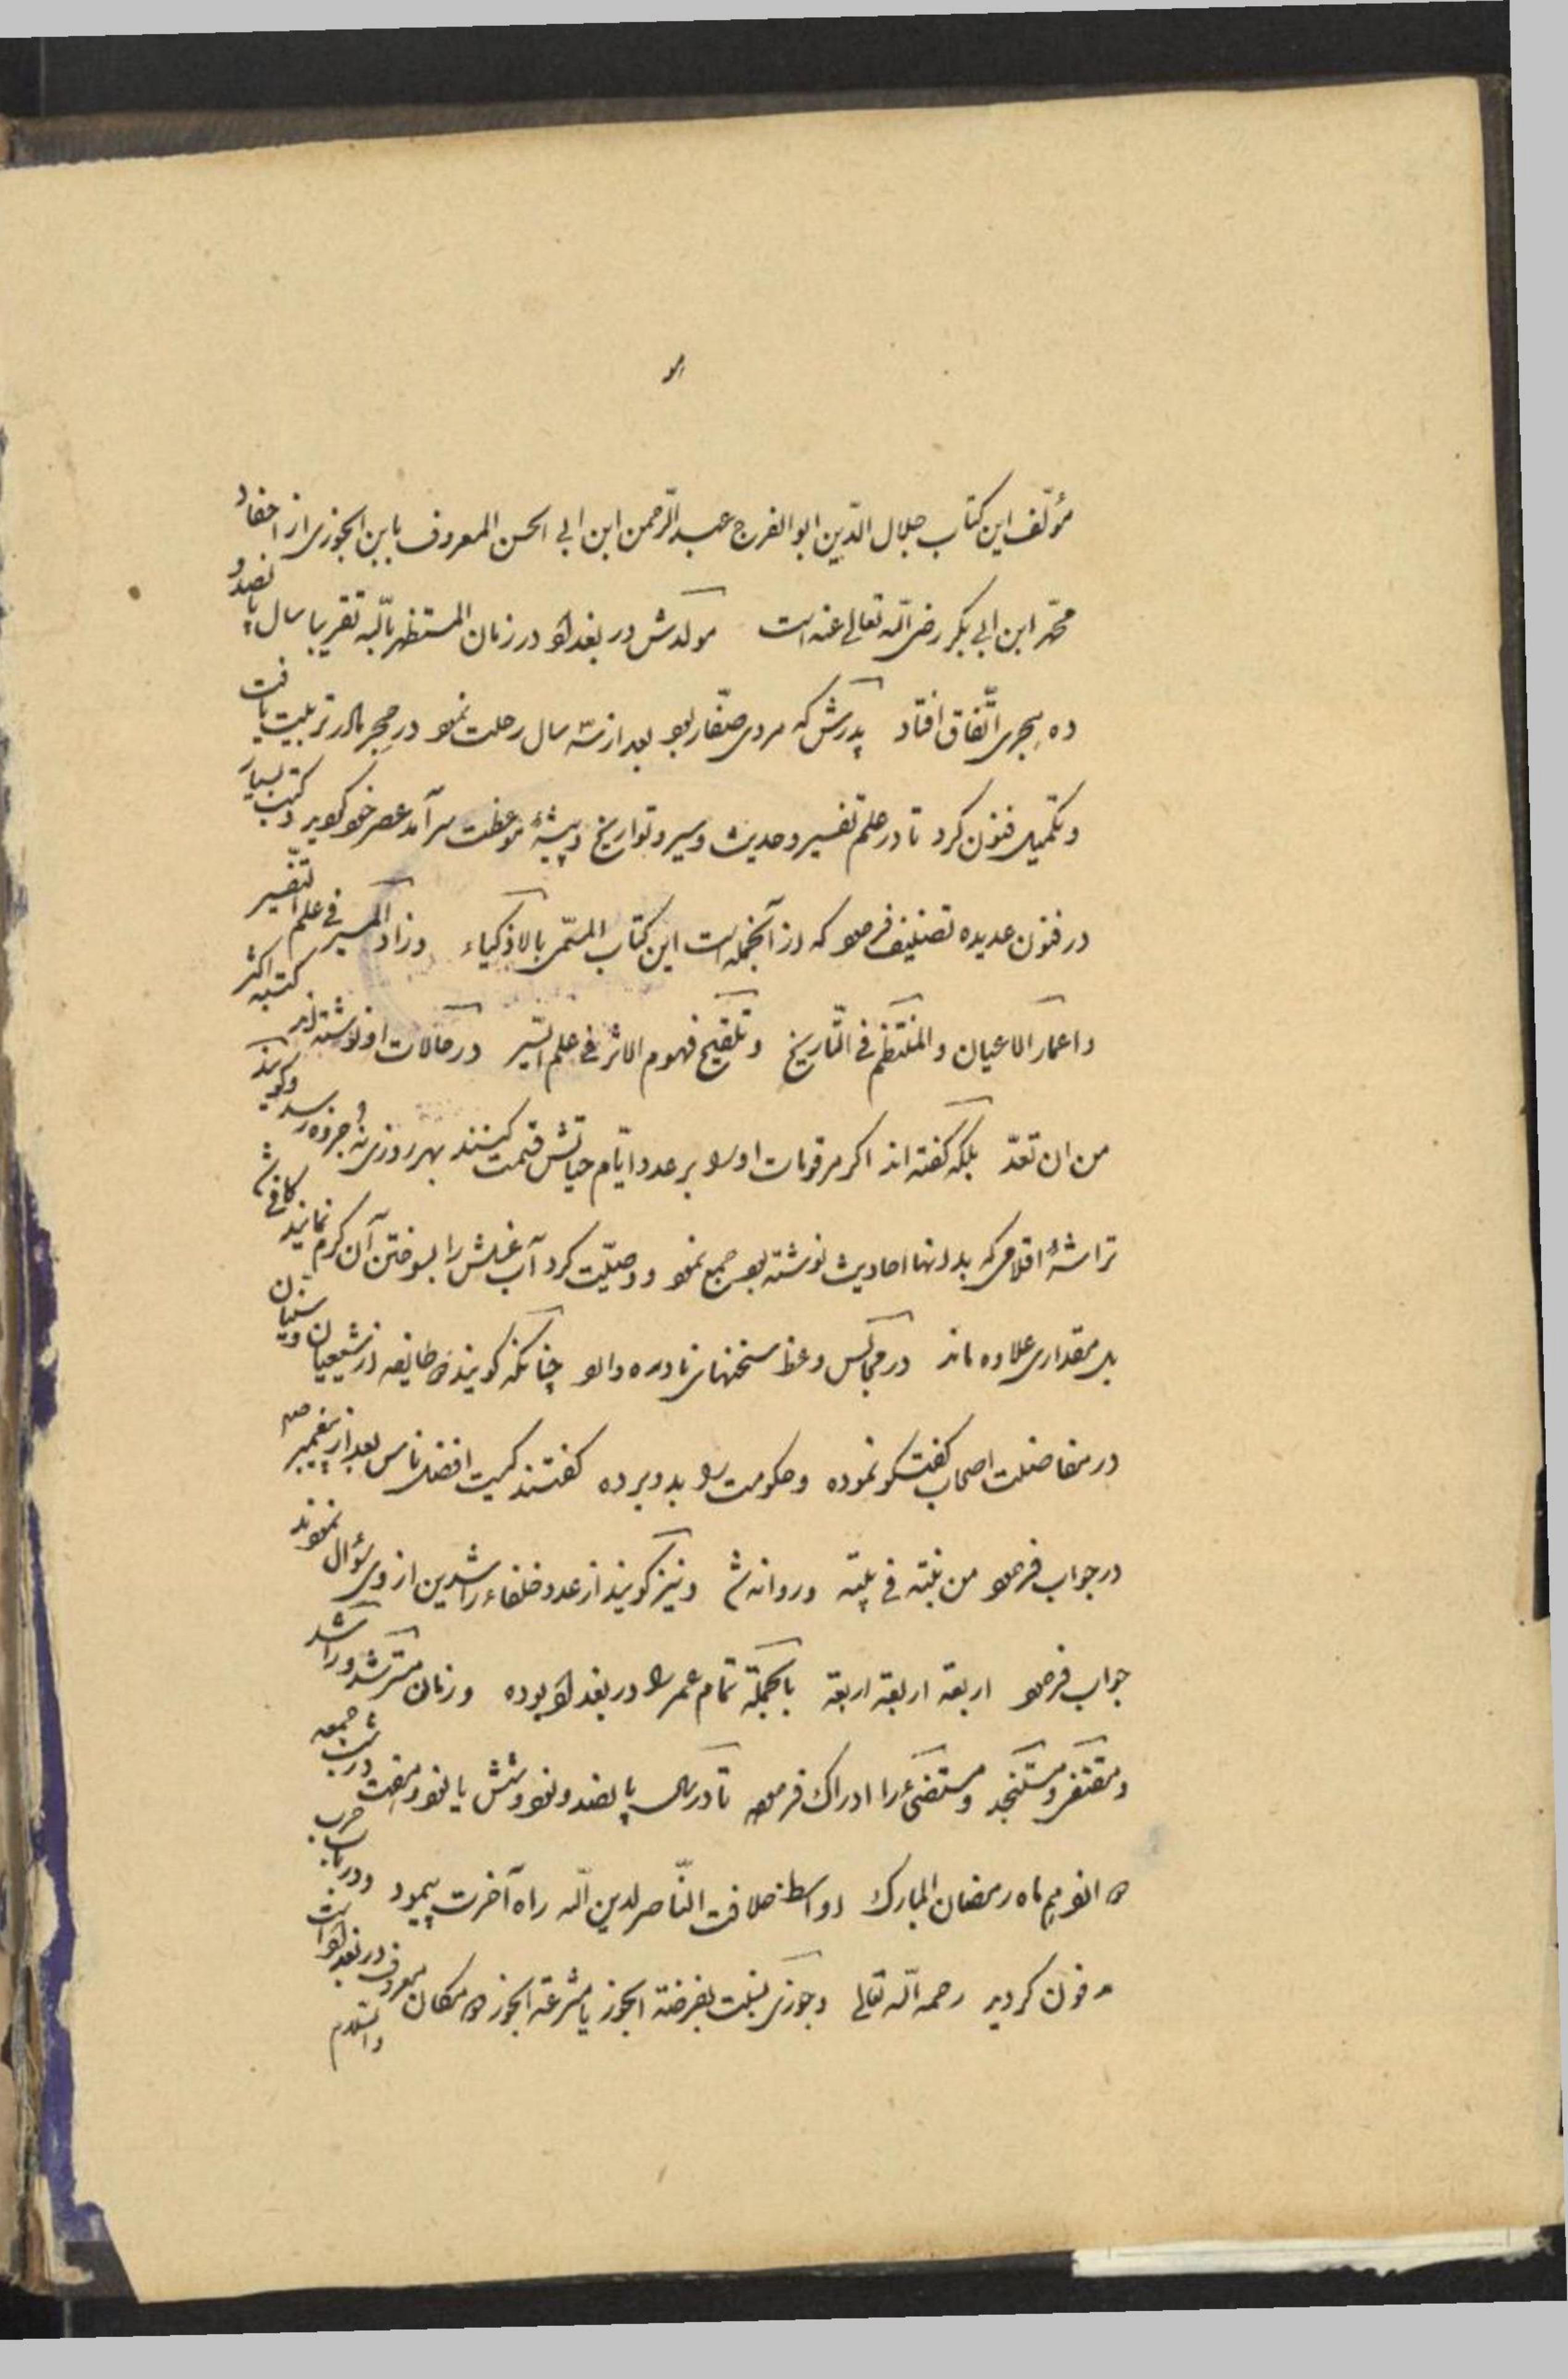 هو
مؤلّف این کتاب جلال الدّین ابو الفرج عبد الرّحمن ابن ابی الحسن المعروف بابن الجوزی از احفاد
محمّد ابن ابی بکر رضی الله تعالی عنه است مولدش در بغداد در زمان المستظهر بالله تقریبا سال پانصد و
ده هجری اتّفاق افتاد پدرش که مردی صفّار بود بعد از سه سال رحلت نمود در حجر مادر تربیت یافت
و تکمیل فنون کرد تا در علم تفسیر و حدیث و سیر و تواریخ و پیشهٔ موعظت سرآمد عصر خود گردید و کتب بسیار
در فنون عدیده تصنیف فرمود که از آنجمله است این کتاب المسمّی بالاذکیاء و زاد المسیر فی علم التفسیر
و اعمار الاعیان و المنتظم فی التّاریخ و تلقیح فهوم الاثر فی علم السّیر در حالات او نوشته اند کتبه اکثر
من ان تعدّ بلکه گفته اند اگر مرقومات او را بر عدد ایّام حیاتش قسمت کنند بهر روزی نه جزوه رسد و گویند
تراشهٔ اقلامی که بدانها احادیث نوشته بود جمع نمود و وصیّت کرد آب غسلش را بسوختن آن گرم نمایند کافی شد
بل مقداری علاوه ماند در مجالس وعظ سخنهای نادره دارد چنانکه گویند دو طایفه از شیعیان و سنّیان
در مفاضلت اصحاب گفتگو نموده و حکومت را بدو برده گفتند کیست افضل ناس بعد از پیغمبر صلعم
در جواب فرمود من بنته فی بیته و روانه شد و نیز گویند از عدد خلفاء راشدین از وی سؤال نمودند
جواب فرمود اربعة اربعة اربعة بالجملة تمام عمر را در بغداد بوده و زمان مسترشد و راشد
و مقتفی و مستنجد و مستضیء را ادراک فرموده تا در سال پانصد و نود و شش یا نود و هفت در شب جمعه
دوازدهم ماه رمضان المبارک اواسط خلافت النّاصر لدین الله راه آخرت پیمود و در باب حرب
مدفون گردید رحمه الله تعالی و جوزی نسبت بفرضة الجوز یا مشرعة الجوز دو مکان معروف در بغداد است
والسّلام